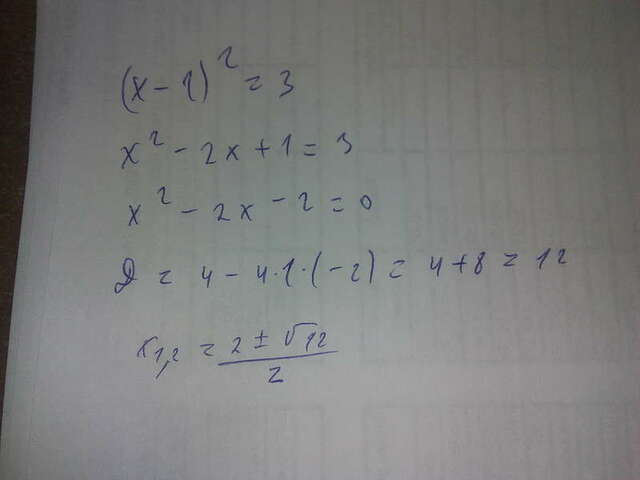 (x-1)² = 3
x² - 2x + 1 = 3
x² - 2x - 2 = 0
D = 4 - 4·1·(-2) = 4+8 = 12
x₁,₂ = (2 ± √12)/2